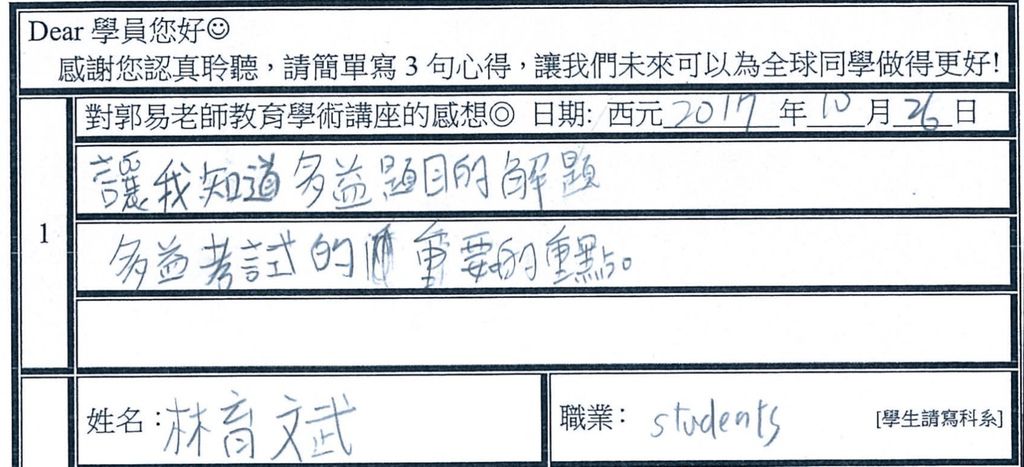 Dear 學員您好☺
感謝您認真聆聽，請簡單寫 3 句心得，讓我們未來可以為全球同學做得更好!
對郭易老師教育學術講座的感想◎ 日期: 西元 2017 年 10 月 26 日
讓我知道多益題目的解題
1
多益考試的 重要的重點。
姓名：林育斌
職業： students [學生請寫科系]